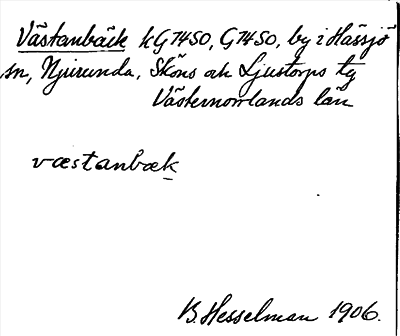 Västanbäck kG74SO, G74SO, by i Hässjö
sn, Njurunda, Sköns och Ljustorps tg
Västernorrlands län
væstanbæk
B. Hesselman 1906.